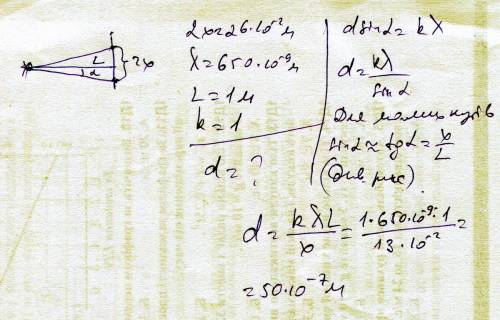 L
α
2x
2x=26·10⁻² м
λ=650·10⁻⁹ м
L=1 м
k=1
d=?
d sinα=kλ
d=kλ/sinα
Для малих кутів
sinα≈tgα=x/L
(Див. рис.)
d=kλL/x=1·650·10⁻⁹·1/13·10⁻²=
=50·10⁻⁷ м